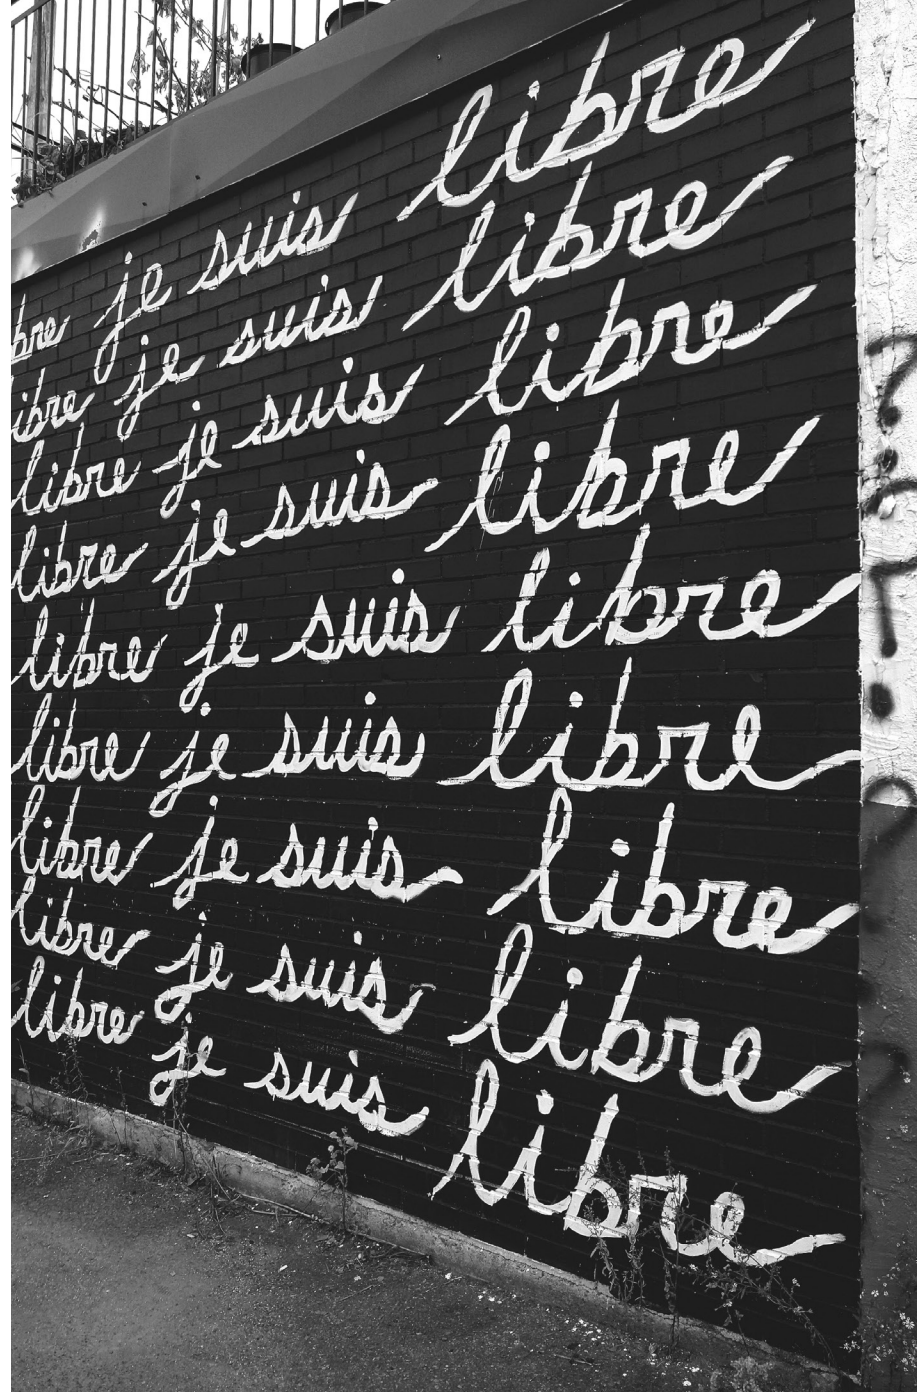 bre je suis libre
ibre je suis libre
libre je suis libre
libre je suis libre
libre je suis libre
libre je suis libre
libre je suis libre
libre je suis libre
libre je suis libre